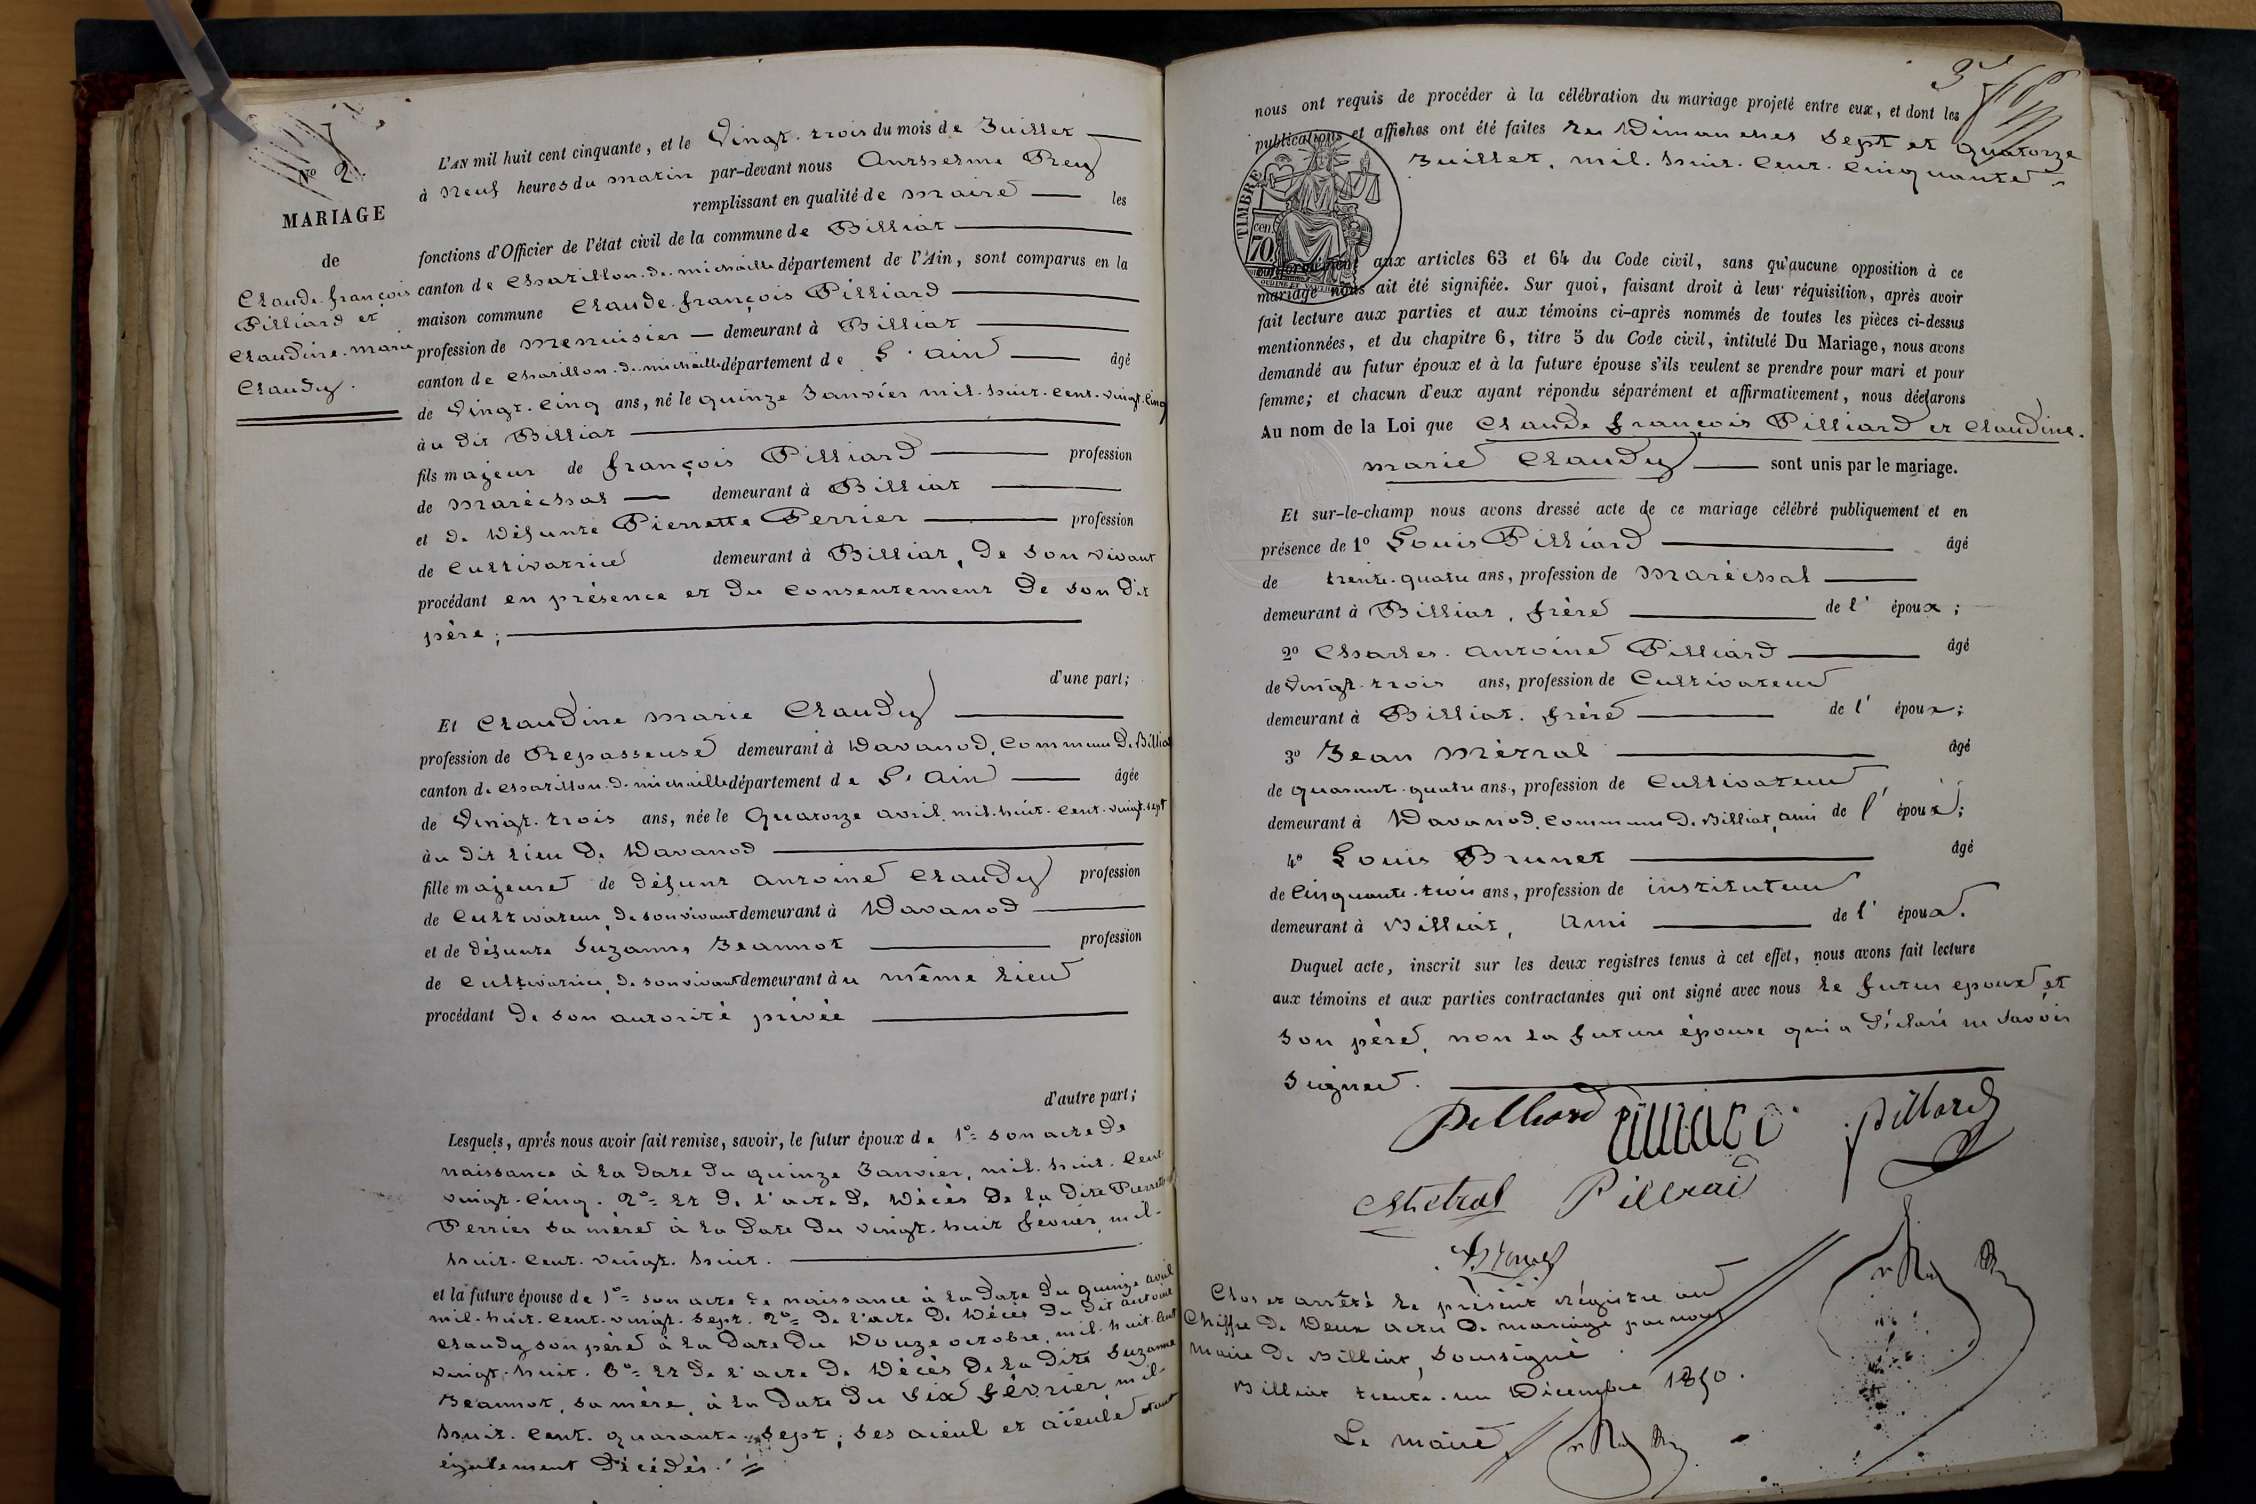 Nº 2.
MARIAGE
de
Claude-françois
Pilliard et
Claudine-marie
Claudy.
L'AN mil huit cent cinquante, et le Vingt-trois du mois de Juillet
à Neuf heures du matin par-devant nous Anthelme Rey
remplissant en qualité de maire les
fonctions d'Officier de l'état civil de la commune de Billiat
canton de Chatillon-de-michaille département de l'Ain, sont comparus en la
maison commune Claude-françois Pilliard
profession de Menuisier demeurant à Billiat
canton de Chatillon-de-michaille département de L'Ain âgé
de Vingt-Cinq ans, né le quinze Janvier mil-huit-Cent-vingt-Cinq
àu dit Billiat
fils majeur de françois Pilliard profession
de Maréchal demeurant à Billiat
et de Défunte Pierrette Perrier profession
de Cultivatrice demeurant à Billiat, de son vivant
procédant en présence et du Consentement de son dit
père;
d'une part;
Et Claudine Marie Claudy
profession de Repasseuse demeurant à Davanod, Commune de Billiat
canton de Chatillon-de-michaille département de L'Ain âgée
de Vingt-trois ans, née le Quatorze avril, mil-huit-Cent-vingt-sept
àu dit lieu de Davanod
fille majeure de défunt Antoine Claudy profession
de Cultivateur, de son vivant demeurant à Davanod
et de défunte Suzanne Jeannot profession
de Cultivatrice, de son vivant demeurant àu même lieu
procédant de son autorité privée
d'autre part;
Lesquels, aprés nous avoir fait remise, savoir, le futur époux de 1º= son acte de
naissance à la date du quinze Janvier, mil-huit-Cent
vingt-Cinq. 2º= Et de l'acte de Décès de la dite Pierrette
Perrier sa mère à la date du vingt-huit février, mil-
huit-Cent-vingt-huit.
et la future épouse de 1º= son acte de naissance à la date du quinze avril
mil-huit-Cent-vingt-sept. 2º= de l'acte de Décès du dit Antoine
Claudy son père à la date du Douze octobre, mil-huit-Cent
vingt-huit. 3º= Et de l'acte de Décès de la dite Suzanne
Jeannot, sa mère, à la date du Six février, mil-
huit-Cent-quarante-sept; ses aïeul et aïeule étant
également décédés.
3
nous ont requis de procéder à la célébration du mariage projeté entre eux, et dont les
publications et affiches ont été faites les Dimanches Sept et Quatorze
Juillet, mil-huit-Cent-Cinquante
TIMBRE
70 cen
conformément aux articles 63 et 64 du Code civil, sans qu'aucune opposition à ce
mariage nous ait été signifiée. Sur quoi, faisant droit à leur réquisition, après avoir
fait lecture aux parties et aux témoins ci-après nommés de toutes les pièces ci-dessus
mentionnées, et du chapitre 6, titre 5 du Code civil, intitulé Du Mariage, nous avons
demandé au futur époux et à la future épouse s'ils veulent se prendre pour mari et pour
femme; et chacun d'eux ayant répondu séparément et affirmativement, nous déclarons
Au nom de la Loi que Claude françois Pilliard et Claudine-
marie Claudy sont unis par le mariage.
Et sur-le-champ nous avons dressé acte de ce mariage célébré publiquement et en
présence de 1º Louis Pilliard âgé
de trente-quatre ans, profession de Maréchal
demeurant à Billiat, frère de l'époux;
2º Charles-Antoine Pilliard âgé
de Vingt-trois ans, profession de Cultivateur
demeurant à Billiat. frère de l'époux;
3º Jean Métral âgé
de quarante-quatre ans, profession de Cultivateur
demeurant à Davanod, Commune de Billiat, ami de l'époux;
4º Louis Brunet âgé
de Cinquante-trois ans, profession de instituteur
demeurant à Billiat, Ami de l'époux.
Duquel acte, inscrit sur les deux registres tenus à cet effet, nous avons fait lecture
aux témoins et aux parties contractantes qui ont signé avec nous le futur époux et
son père, non la future épouse qui a déclaré ne savoir
signer.
Pilliard Pilliard Pilliard
Metral Pilliard
Brunet
Clos et arrêté le présent régistre au
Chiffre de Deux actes de mariage par nous
Maire de Billiat, soussigné
Billiat trente-un Décembre 1850.
Le maire